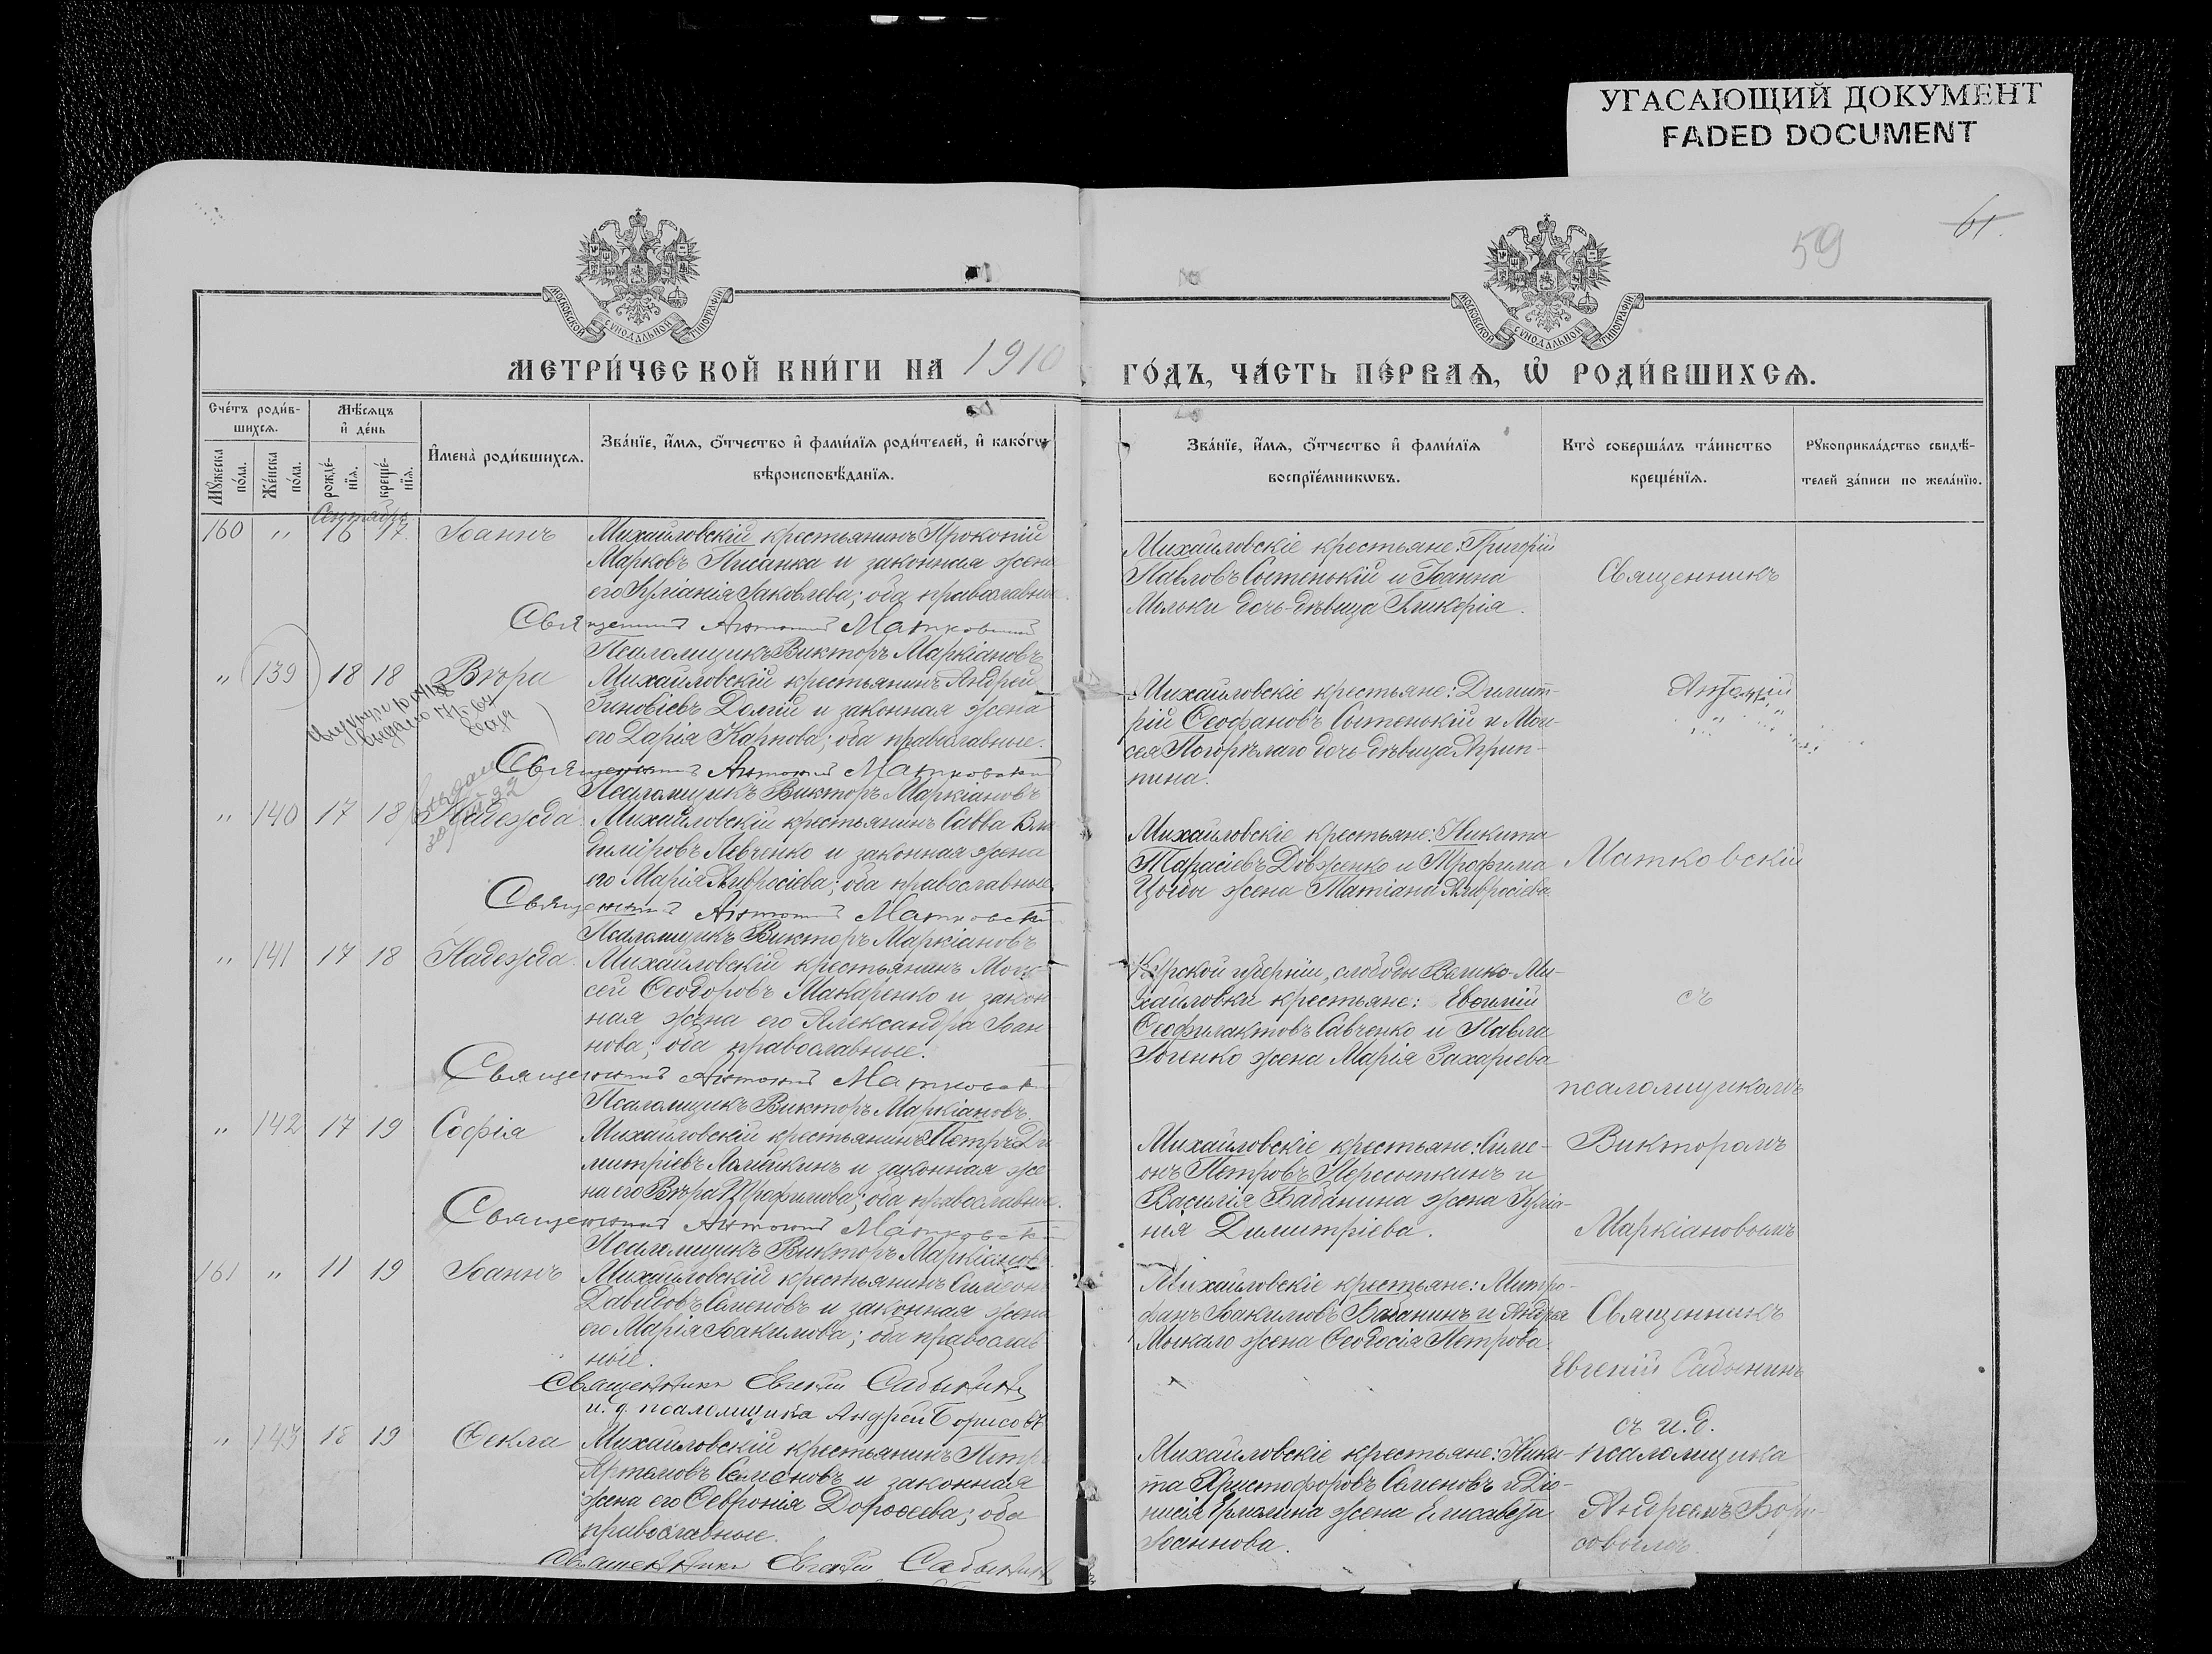 УГАСАЮЩИЙ ДОКУМЕНТ
FADED DOCUMENT
59
61
МОСКОВСКОЙ СѴНОДАЛЬНОЙ ТИПОГРАФІИ
МОСКОВСКОЙ СѴНОДАЛЬНОЙ ТИПОГРАФІИ
МЕТРИ́ЧЕСКОЙ КНИ́ГИ НА 1910
ГО́ДЪ, ЧА́СТЬ ПЕ́РВАѦ, Ѽ РОДИ́ВШИХСѦ.
Сче́тъ роди́в-
шихсѧ.
Мѣ́сѧцъ
и҆ де́нь
Мꙋ́жеска по́ла.
Же́нска по́ла.
рожде́-
нїѧ.
креще́-
нїѧ.
И҆мена̀ роди́вшихсѧ.
Зва́нїе, и҆́мѧ, ѻ҆́тчество и҆ фами́лїѧ роди́телей, и҆ како́гѡ
вѣроисповѣ́данїѧ.
Зва́нїе, и҆́мѧ, ѻ҆́тчество и҆ фами́лїѧ
воспрїе́мникѡвъ.
Кто̀ соверша́лъ та́инство
креще́нїѧ.
Рꙋкоприкла́дство свидѣ́-
телей за́писи по жела́нїю.
Сентябрь
160 " 16 17. Іоаннъ Михайловскій крестьянинъ Прокопій
Марковъ Писанка и законная жена
его Іуліанія Іаковлева; оба православные.
Священникъ Антоній Матковскій
Псаломщикъ Викторъ Маркіановъ
Михайловскіе крестьяне: Григорій
Павловъ Сытенькій и Іоанна
Мальки дочь-дѣвица Гликерія.
Священникъ
" 139 18 18 Вѣра Михайловскій крестьянинъ Андрей
Зиновіевъ Долгій и законная жена
его Дарія Карпова; оба православные.
Священникъ Антоній Матковскій
Псаломщикъ Викторъ Маркіановъ
Михайловскіе крестьяне: Димит-
рій Ѳеофановъ Сытенькій и Мои-
сея Погорѣлаго дочь-дѣвица Агрип-
пина.
Антоній
" 140 17 18 Надежда Михайловскій крестьянинъ Савва Вла
диміровъ Левченко и законная жена
его Марія Амвросіева; оба православные.
Священникъ Антоній Матковскій
Псаломщикъ Викторъ Маркіановъ
Михайловскіе крестьяне: Никита
Тарасіевъ Довженко и Трофима
жена Татіана Амвросіева.
Матковскій
" 141 17 18 Надежда Михайловскій крестьянинъ Мои-
сей Ѳеодоровъ Макаренко и закон
ная жена его Александра Іоан
нова; оба православные.
Священникъ Антоній Матковскій
Псаломщикъ Викторъ Маркіановъ.
Курской губерніи, слободы Велико-Ми-
хайловки крестьяне: Евѳимій
Ѳеофилактовъ Савченко и Павла
жена Марія Захаріева
съ
псаломщикомъ
" 142 17 19 Софія Михайловскій крестьянинъ Петръ Ди
митріевъ и законная же
на его Вѣра Трофимова; оба православные.
Священникъ Антоній Матковскій
Псаломщикъ Викторъ Маркіановъ
Михайловскіе крестьяне: Симе-
онъ Петровъ Пересыпкинъ и
Василія Бабанина жена Іуліа-
нія Димитріева.
Викторомъ
Маркіановымъ
161 " 11 19 Іоаннъ Михайловскій крестьянинъ Симеонъ
Давидовъ Семеновъ и законная жена
его Марія Іоакимова; оба православ
ные.
Священникъ Евгеній Садынинъ
и. д. псаломщика Андрей Борисовъ
Михайловскіе крестьяне: Митро-
фанъ Іоакимовъ Бабанинъ и Андрея
Мыкало жена Ѳеодосія Петрова.
Священникъ
Евгеній Садынинъ
" 143 18 19 Ѳекла Михайловскій крестьянинъ Петръ
Артемовъ Семеновъ и законная
жена его Ѳевронія Дороѳеева; оба
православные.
Священникъ Евгеній Садынинъ
Михайловскіе крестьяне: Ники-
та Христофоровъ Семеновъ и Діо-
нисія Ермолина жена Елисавета
Іоаннова.
съ и. д.
псаломщика
Андреемъ Бори-
совымъ.